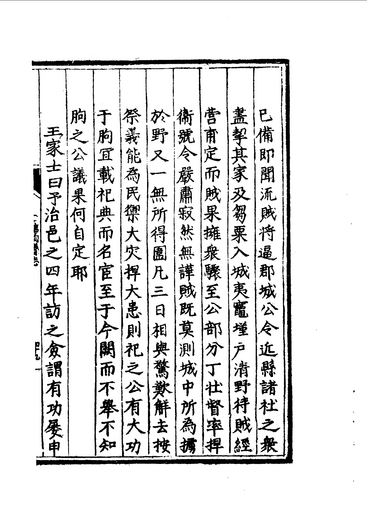 已備即聞流賊將逼郡城公令近縣諸社之衆
盡挈其家及芻粟入城夷竈堙戶清野待賊經
營甫定而賊果擁衆驟至公部分丁壯督率捍
衛號令嚴肅寂然無譁賊既莫測城中所為攎
於野又一無所得圍凡三日相與驚歎解去按
祭義能為民禦大灾捍大患則祀之公有大功
于朐宜載祀典而名宦至于今闕而不舉不知
朐之公議果何自定耶
王家士曰予治邑之四年訪之僉謂有功屡申